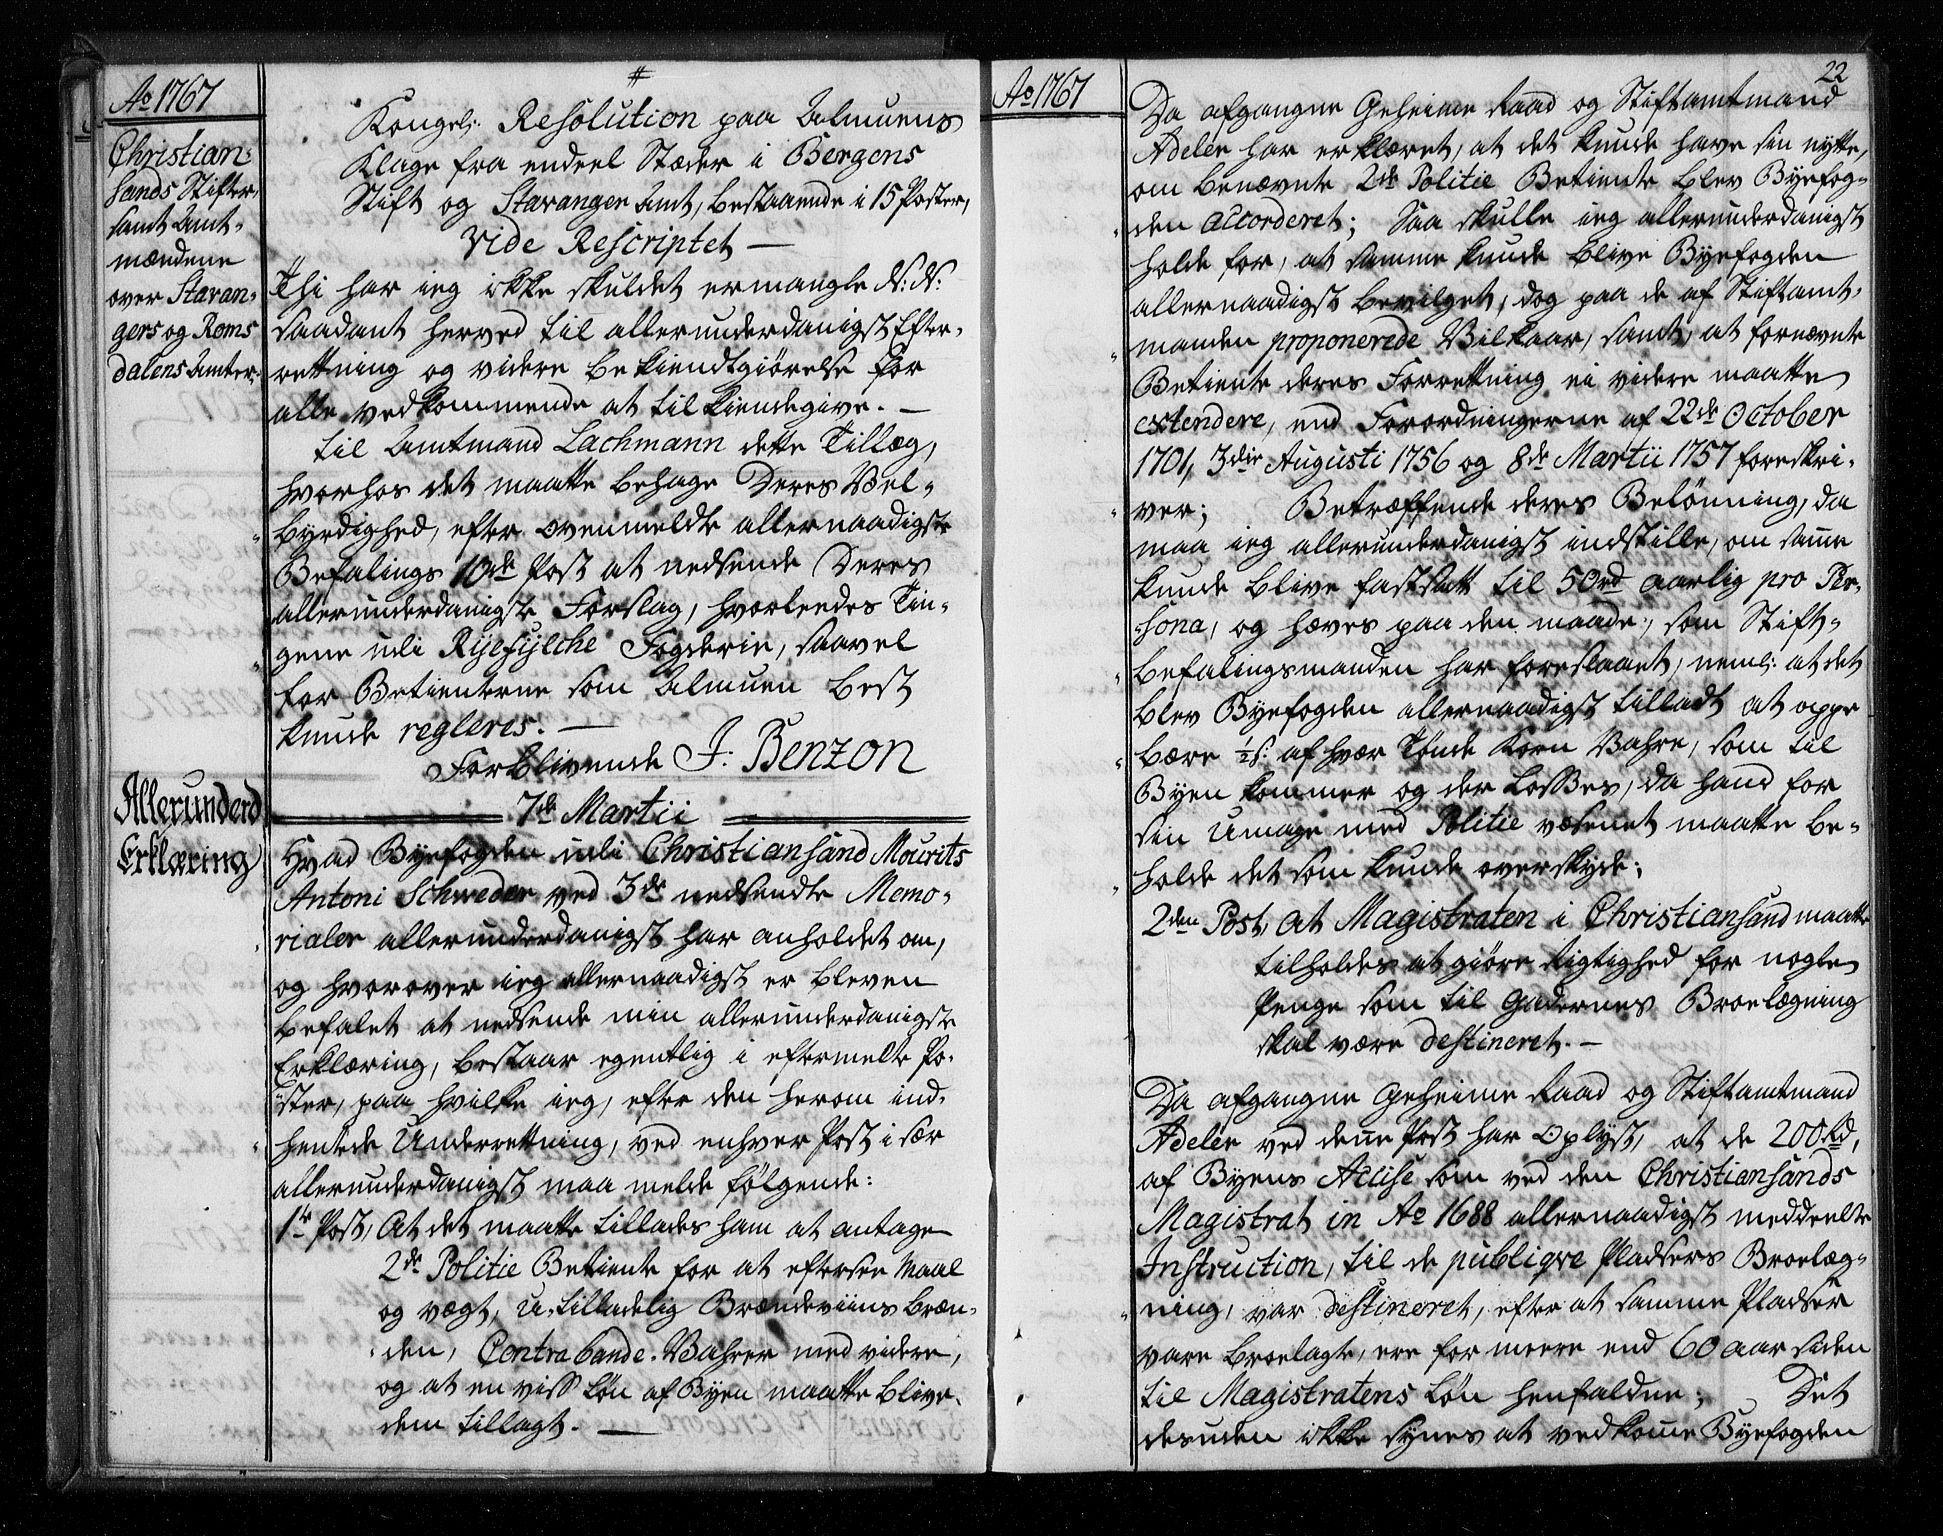 Ao 1767
Christian-
sands Stifter,
samt Amt-
mændene
over Stavan-
gers og Roms
dalens Amter.
#
Kongel: Resolution paa Almuens
Klage fra endeel Stæder i Bergens
Stift og Stavanger Amt, bestaaende i 15 Poster,
Vide Rescriptet —
Thi har ieg ikke skuldet ermangle N: N:
saadant herved til allerunderdanigst Efter-
rettning og videre bekiendtgiørelse for
alle vedkommende at tilkiendegive. —
til Amtmand Lachmann dette Tillæg,
hvorhos det maatte behage Deres Vel-
byrdighed, efter ovenmeldte allernaadigste
Befalings 10de Post at nedsende Deres
allerunderdanigste Forslag, hvorledes Tin-
gene udi Ryefylche Fogderie, saavel
for Betienterne som Almuen best
kunde regleres. —
Forblivende J. Benzon
Allerunderd
Erklæring
7de Martii
Hvad Byefogden udi Christiansand Mourits
Antoni Schweder ved 3de nedsendte Memo-
rialer allerunderdanigst har anholdet om,
og hvorover ieg allernaadigst er bleven
befalet at nedsende min allerunderdanigste
Erklæring, bestaar egentlig i eftermelte Po-
ster, paa hvilke ieg, efter den herom ind-
hentede Underrettning, ved enhver Post i sær
allerunderdanigst maa melde følgende:
1te Post, At det maatte tillades ham at antage
2de Politie Betiente for at eftersee Maal
og vægt, u-tilladelig Brændeviins bræn-
den, Contrabande-Vahrer med videre,
og at en viss Løn af Byen maatte blive
dem tillagt. —
Ao 1767
22
Da afgangne Geheime Raad og Stiftamtmand
Adeler har erklæret, at det kunde have sin nytte,
om benævnte 2de Politie Betiente blev Byefog-
den accorderet; Saa skulle ieg allerunderdanigst
holde for, at samme kunde blive Byefogden
allernaadigst bevilget, dog paa de af Stiftamt-
manden proponerede Vilkaar, samt, at fornævnte
Betiente deres Forrettning ei videre maatte
extendere, end Forordningerne af 22de October
1701, 3die Augusti 1756 og 8de Martii 1757 foreskri-
ver; Betræffende deres Belönning, da
maa ieg allerunderdanigst indstille, om samme
kunde blive fastsatt til 50rd aarlig pro Per-
sona, og hæves paa den maade, som Stift-
befalingsmanden har foreslaaet, neml: at det
blev Byefogden allernaadigst tilladt at oppe
bære ½s: af hver Tønde Korn Vahre, som til
Byen kommer og der Losses, da hand for
sin umage med Politie væsenet maatte be-
holde det som kunde overskyde;
2den Post, at Magistraten i Christiansand maatte
tilholdes at giøre Rigtighed for nogle
Penge som til Gadernes Broelægning
skal være destineret. —
Da afgangne Geheime Raad og Stiftamtmand
Adeler ved denne Post har oplyst, at de 200 Rd,
af Byens Accise som ved den Christiansands
Magistrat in Ao 1688 allernaadigst meddeelte
Instruction, til de publiqve Pladsers Broelæg-
ning, var destineret, efter at samme Pladser
vare broelagte, ere for meere end 60 aar siden
til Magistratens Løn henfaldne; Det
desuden ikke synes at vedkomme Byefogden